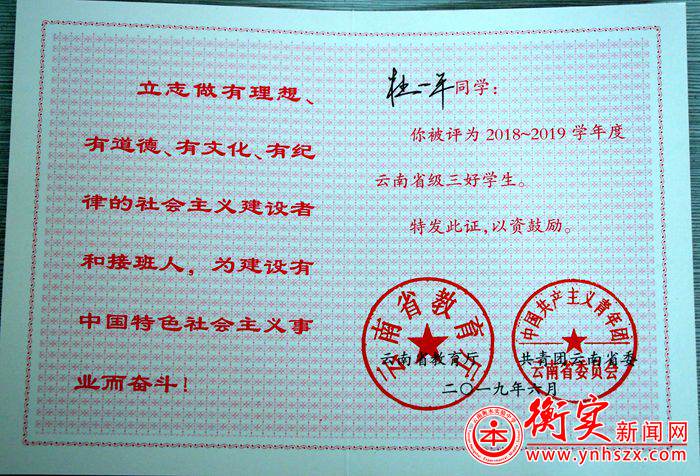 立志做有理想、
有道德、有文化、有纪
律的社会主义建设者
和接班人，为建设有
中国特色社会主义事
业而奋斗！
杜一平同学：
你被评为2018~2019学年度
云南省级三好学生。
特发此证，以资鼓励。
云南省教育厅
中国共产主义青年团
云南省委员会
云南省教育厅
共青团云南省委
二〇一九年六月
本
衡实新闻网
www.ynhszx.com